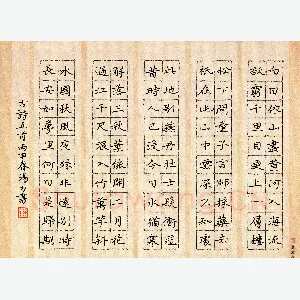 白日依山盡黃河入海流
欲窮千里目更上一層樓
松下問童子言師採藥去
祇在此山中雲深不知處
此地別燕丹壯士髮衝冠
昔時人已沒今日水猶寒
解落三秋葉能開二月花
過江千尺浪入竹萬竿斜
水國秋風夜殊非遠別時
長安如夢里何日是歸期
古詩五首丙申春